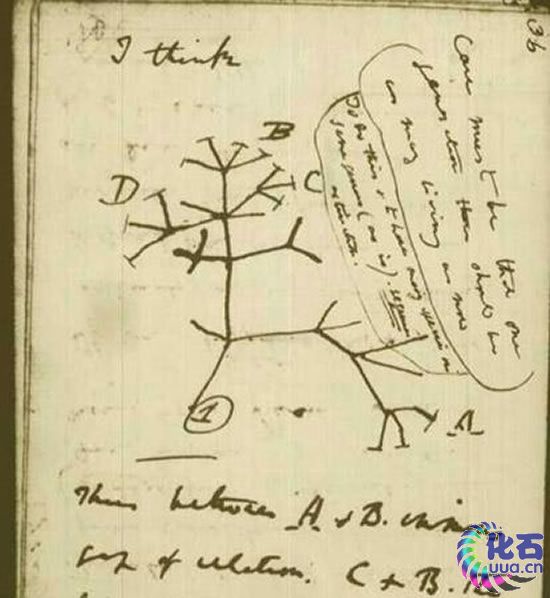 I think
36
Case must be that one
generation then should be
as many living as now
To do this & to have many species in
same genus (as is). requires
extinction.
B
D
C
1
A
Thus between A & B. immense
gap of relation. C & B.
化石
uua.cn